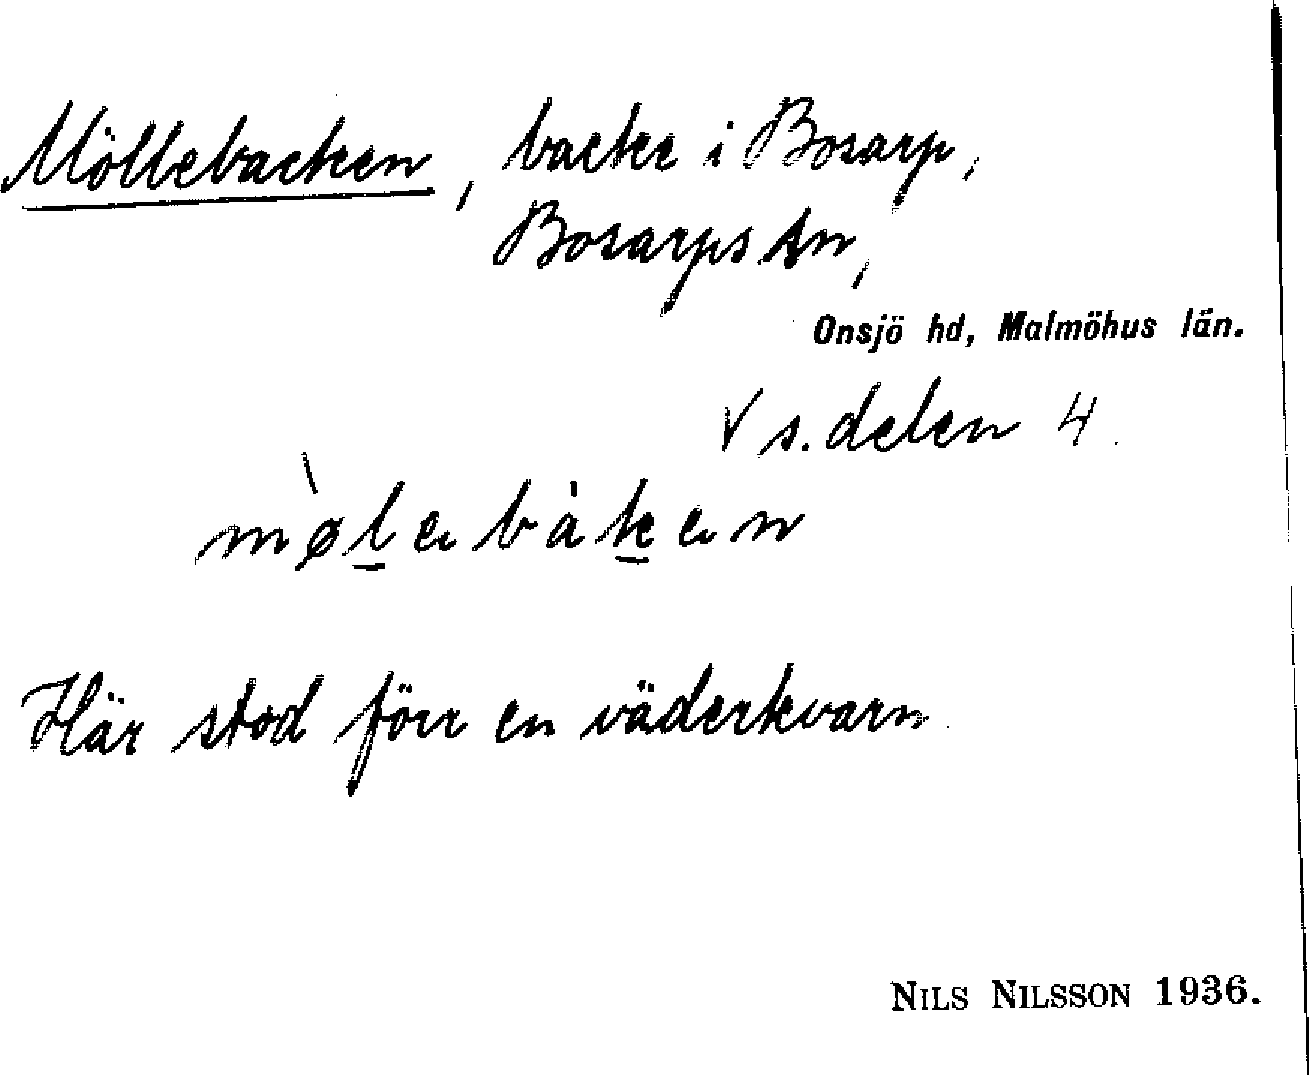 Möllebacken, backe i Bosarp,
Bosarps sn,
Onsjö hd, Malmöhus län.
V s. delen 4.
mø̀l̲ebàk̲en
Här stod förr en väderkvarn.
NILS NILSSON 1936.